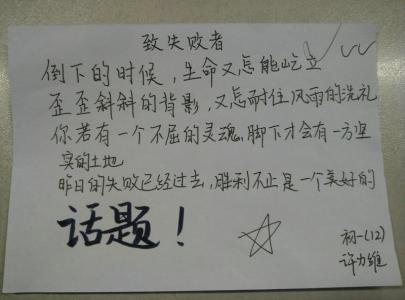 致失败者
倒下的时候，生命又怎能屹立
歪歪斜斜的背影，又怎耐住风雨的洗礼
你若有一个不屈的灵魂，脚下才会有一方坚
实的土地
昨日的失败已经过去，胜利不止是一个美好的
话题！
初一(12)
许力维